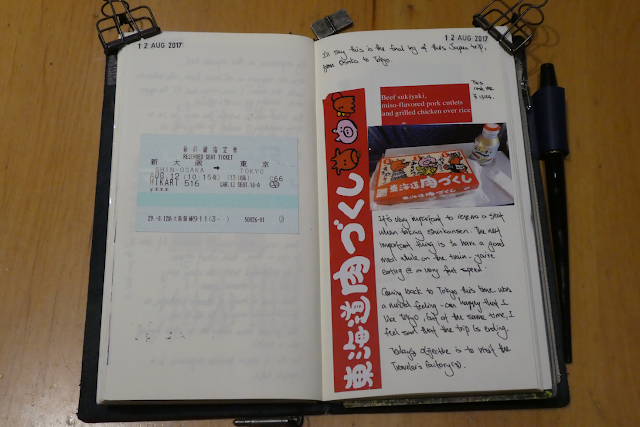 12 AUG 2017
新幹線指定券
RESERVED SEAT TICKET
新大阪 → 東京
SHIN-OSAKA TOKYO
AUG.12 (10:15発) (13:10着) C66
HIKARI 516 CAR.12 SEAT.16-A
50826-01
12 AUG 2017
I'll say this is the final leg of this Japan trip,
from Osaka to Tokyo.
This
cost me
Beef sukiyaki,
miso-flavored pork cutlets
and grilled chicken over rice
東海道肉づくし
東海道肉づくし
It's very important to reserve a seat
when taking shinkansen. The next
important thing is to have a good
meal while on the train - you're
eating @ a very fast speed.
Coming back to Tokyo this time was
a mixed feeling - am happy that I
like Tokyo, but at the same time, I
feel sad that the trip is ending.
Today's objective is to visit the
Traveler's Factory(s).